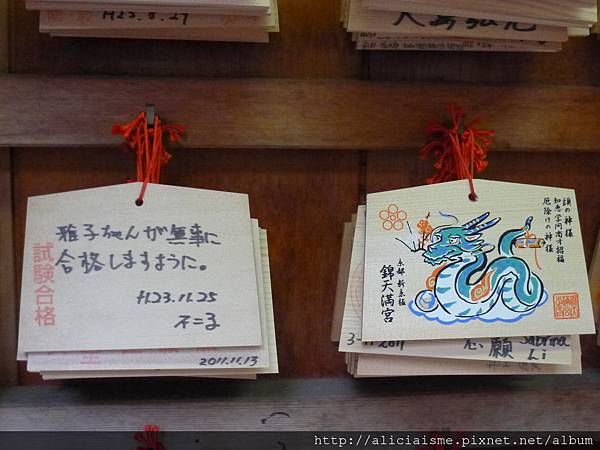 H23.8.27
雅子ちゃんが無事に
合格しますように。
H23.11.25
不二子
試験合格
2011.11.13
頭の神様
知恵学問商才招福
厄除けの神様
京都 新京極
錦天満宮
願
Sabrina
Li
http://aliciaisme.pixnet.net/album